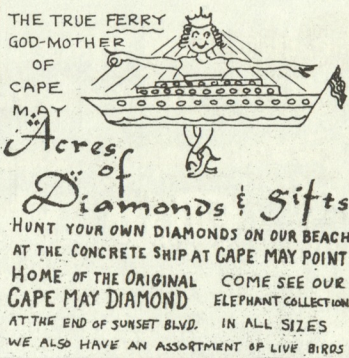 THE TRUE FERRY
GOD-MOTHER
OF
CAPE
MAY
Acres
of
Diamonds & Gifts
HUNT YOUR OWN DIAMONDS ON OUR BEACH
AT THE CONCRETE SHIP AT CAPE MAY POINT
HOME OF THE ORIGINAL
CAPE MAY DIAMOND
AT THE END OF SUNSET BLVD.
COME SEE OUR
ELEPHANT COLLECTION
IN ALL SIZES
WE ALSO HAVE AN ASSORTMENT OF LIVE BIRDS